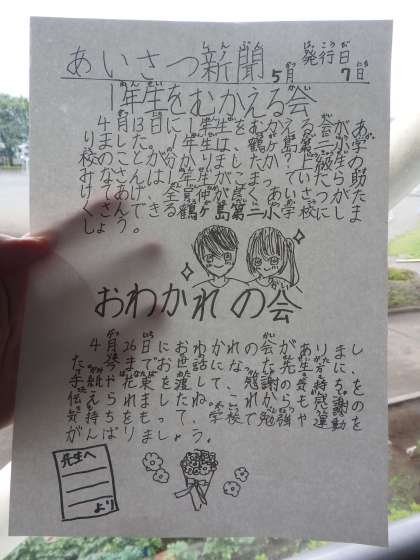 あいさつ新聞
発行日
5月7日
1年生をむかえる会
4月13日に1年生をおむかえする会があ
りました。1年生は、鶴ヶ島第二小学
校のことが分かりましたか。上級生の
みなさんは、
けがなくできる
くしましょう。
おわかれの会
4月26日におわかれの会がありまし
た。今までお世話になった先生方に、
手紙や花束を渡して、感謝の気持ちを
伝えられましたね。これからも感謝の
気持ちをもって、学校で勉強や運動を
がんばりましょう。
先生へ
より